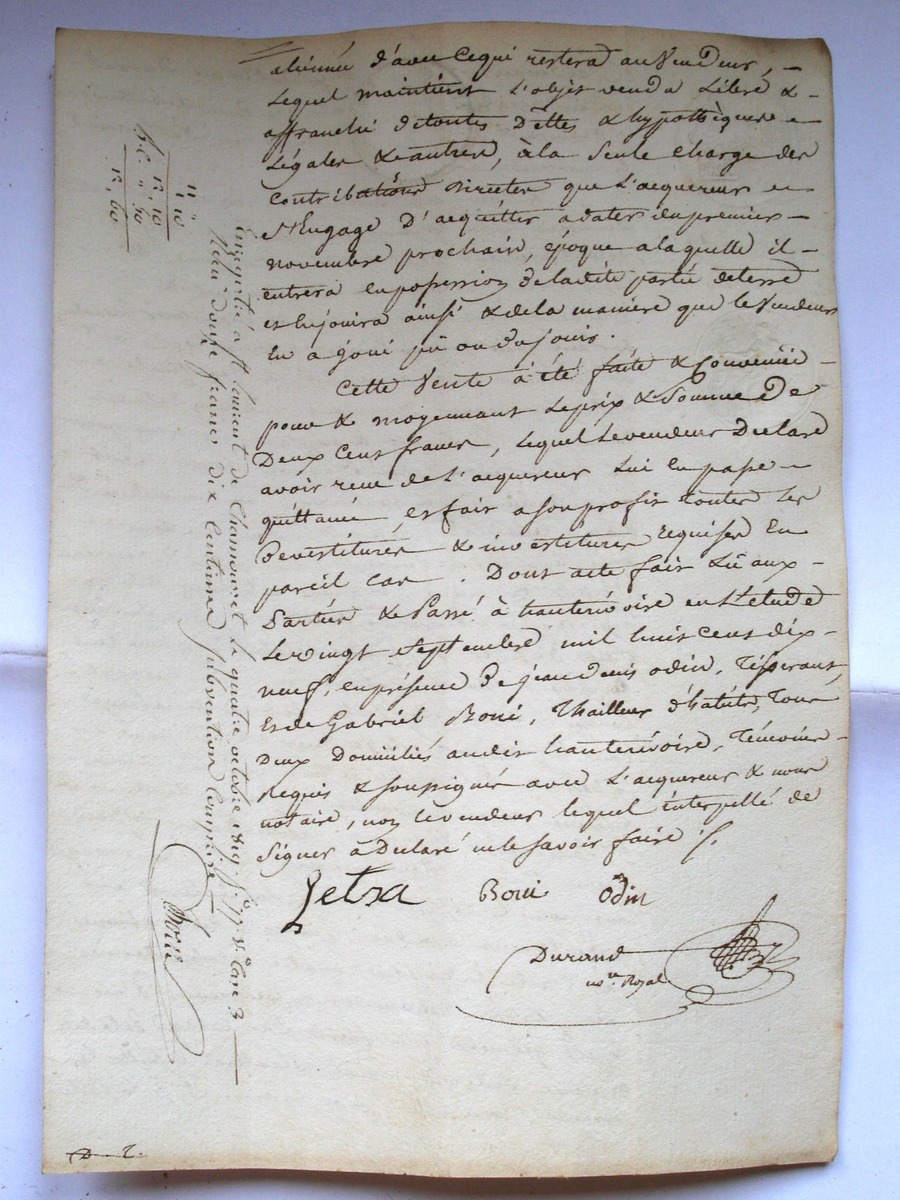 aliénné d'avec cequi restera auVendeur, –
Lequel maintient L'objet vendu Libre &
affranchi detoutes Dettes & hypothèques –
Légales & autres, àla Seule charge des
Contributions Directes que L'acquereur
s'Engage D'acquitter adater dupremier –
novembre prochain, époque alaquelle il –
entrera enpossession deladite partie deterre
et enjouira ainsi & dela maniere que levendeur
En a joui pû ou dujouir.
Cette Vente à été faite & Convenüe –
pour & moyennant Leprix & Somme De
Deux Cent francs, Lequel Levendeur Declare
avoir reçu de L'acquereur Lui en passe –
quittance, et fait asonprofit toutes les
Devestitures & investitures requises En
pareil cas. Dont acte fait Lû aux –
Parties & Passé à hauterivoire en L'etude
Le vingt septembre mil huit cent dix –
neuf, en présence De jean denis odin, Tisserant,
Et de Gabriel Boui, Thailleur d'habits, Tous
Deux Domiciliés audit hauterivoire, Témoins –
Requis & soussignés avec L'acquereur & nous
notaire, non levendeur lequel interpellé de
Signer à Declaré ne le savoir faire /.
Boui odin
Durand
no.re Royal
Enregistré à st Laurent de Chamousset le quatre octobre 1819 f.o 77 v.o Case 3
Reçu douze francs dix Centimes Subvention Comprise
11 "
1, 10
12, 10
" 50
12, 60